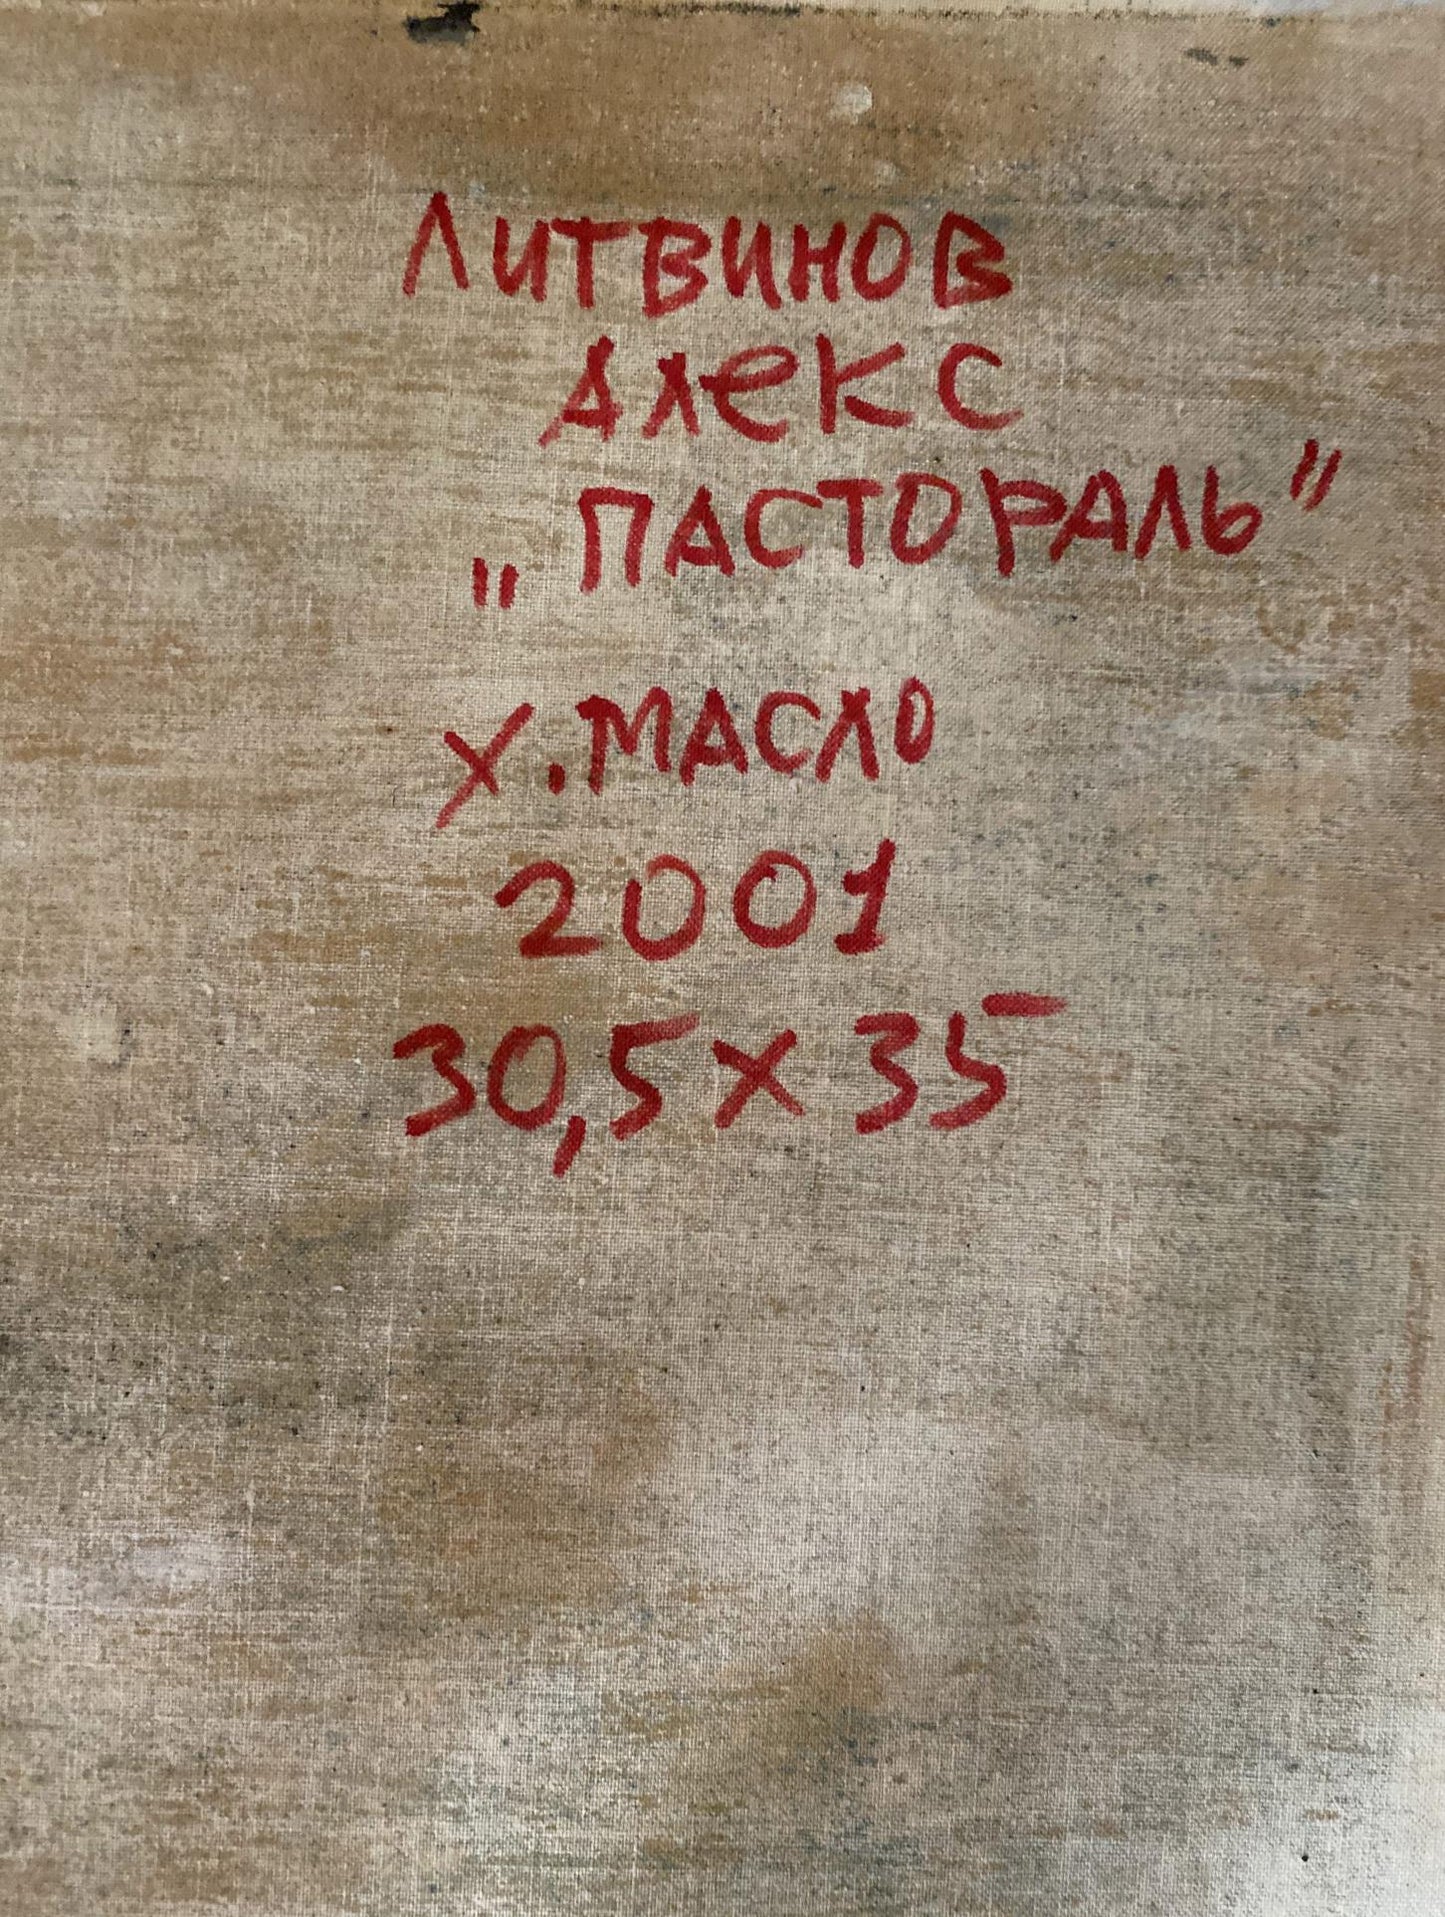 ЛИТВИНОВ
АЛЕКС
„ПАСТОРАЛЬ"
Х.МАСЛО
2001
30,5 x 35